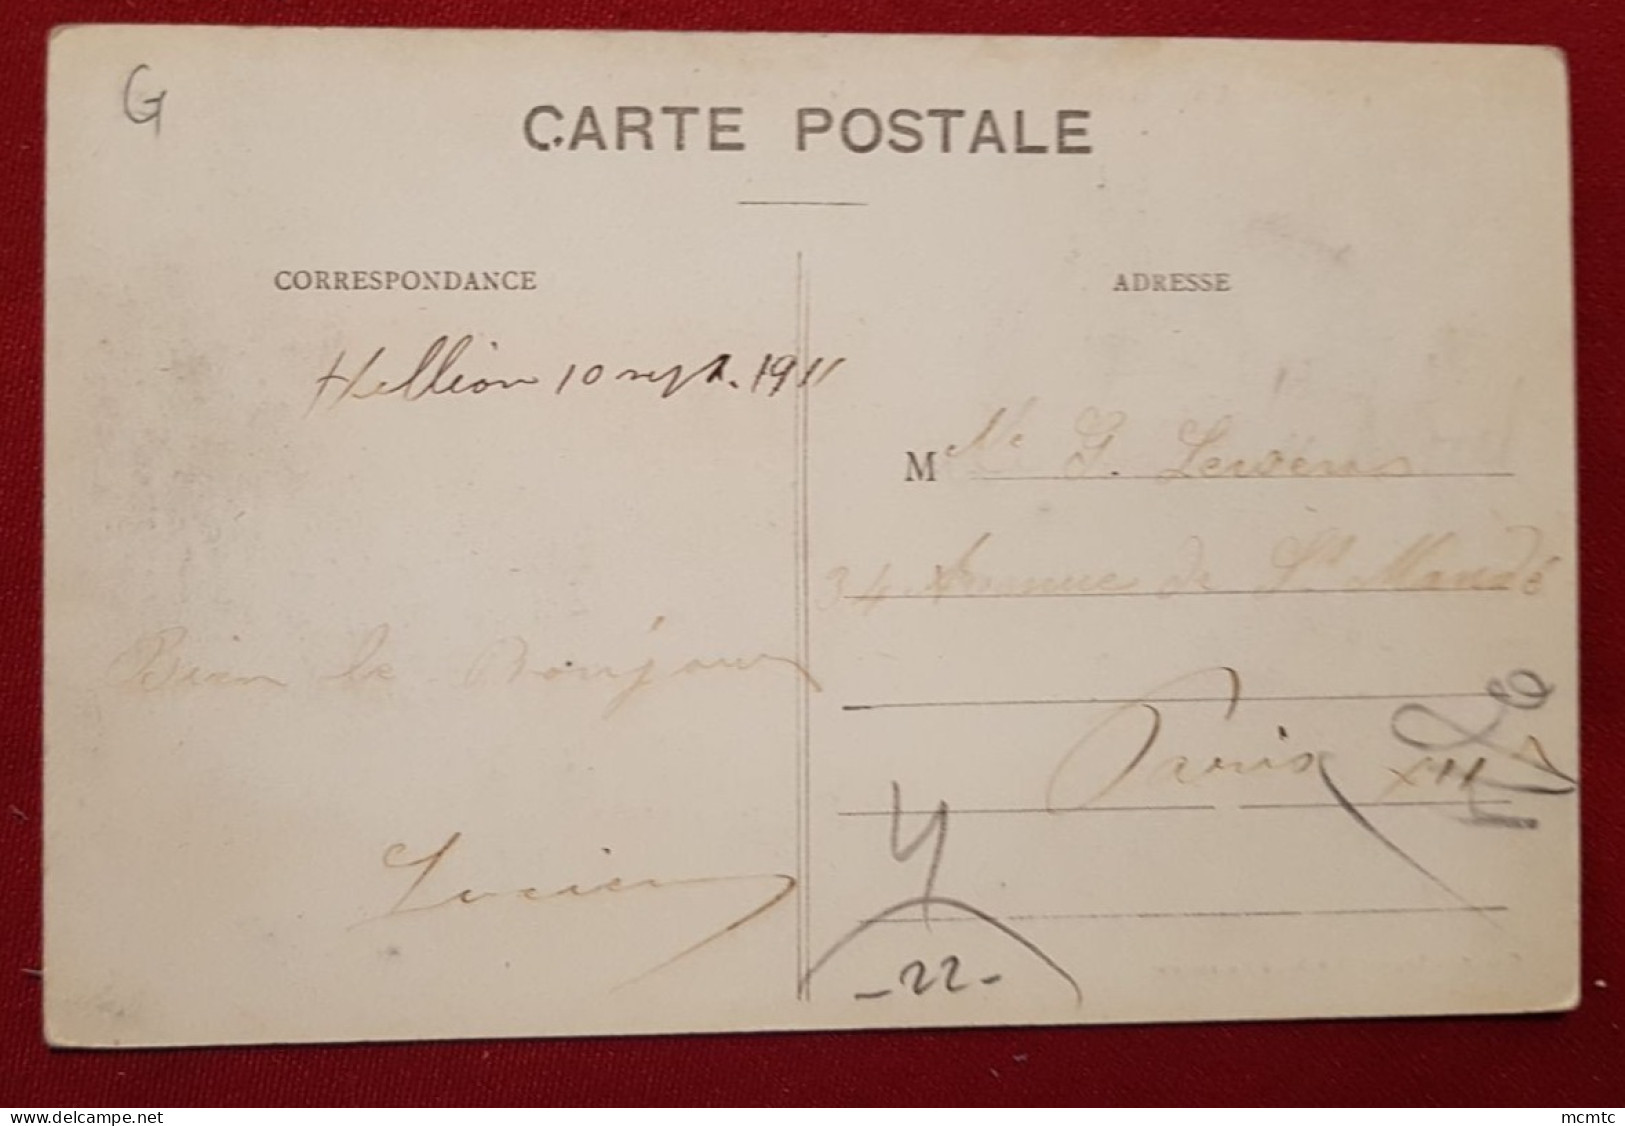 G
CARTE POSTALE
CORRESPONDANCE
ADRESSE
Hellion 10 sept. 1911
M lle G.
34 Avenue de St Mandé
Bien le Bonjour
Paris XII
Lucien
-22-
mcmtc